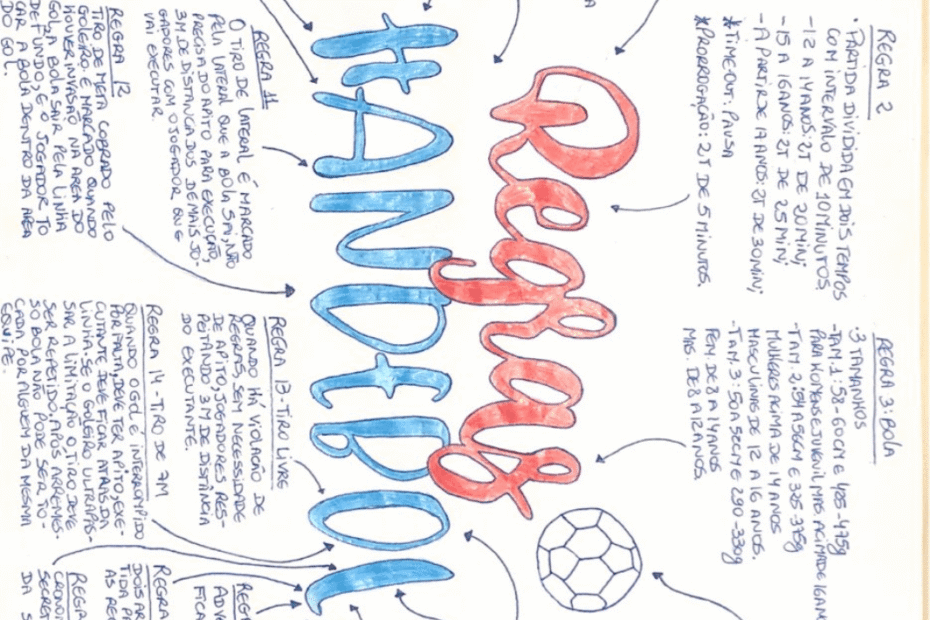 Regras
HANDEBOL
REGRA 2
• PARTIDA DIVIDIDA EM DOIS TEMPOS
COM INTERVALO DE 10 MINUTOS.
- 12 A 14 ANOS: 2T DE 20 MIN;
- 15 A 16 ANOS: 2T DE 25 MIN;
- A PARTIR DE 17 ANOS: 2T DE 30 MIN;
* TIME-OUT: PAUSA
* PRORROGAÇÃO: 2T DE 5 MINUTOS.
REGRA 3: BOLA
• 3 TAMANHOS
- TAM. 1: 58-60CM E 425-475g
PARA HOMENS E JUVENIL MAS. ACIMA DE 16 ANOS
- TAM. 2: 54 A 56CM E 325 375g
MULHERES ACIMA DE 14 ANOS
MASCULINAS DE 12 A 16 ANOS.
- TAM. 3: 50 A 52CM E 290-330g
FEM. DE 8 A 14 ANOS
MAS. DE 8 A 12 ANOS.
REGRA 11
O TIRO DE LATERAL É MARCADO
PELA LATERAL QUE A BOLA SAI, NÃO
PRECISA DO APITO PARA EXECUÇÃO,
3M DE DISTANCIA DOS DEMAIS JO-
GADORES COM O JOGADOR QUE
VAI EXECUTAR.
REGRA 12
TIRO DE META COBRADO PELO
GOLEIRO, É MARCADO QUANDO
HOUVER INVASÃO NA ÁREA DO
GOL, A BOLA SAIR PELA LINHA
DE FUNDO, E O JOGADOR TO
CAR A BOLA DENTRO DA ÁREA
DO GOL.
REGRA 13 - TIRO LIVRE
QUANDO HÁ VIOLAÇÃO DE
REGRAS, SEM NECESSIDADE
DE APITO, JOGADORES RES-
PEITANDO 3M DE DISTÂNCIA
DO EXECUTANTE.
REGRA 14 - TIRO DE 7M
QUANDO O GOL É INTERROMPIDO
POR FALTA, DEVE TER APITO, EXE-
CUTANTE DEVE FICAR ATRÁS DA
LINHA. SE O GOLEIRO ULTRAPAS-
SAR A LIMITAÇÃO, O TIRO, DEVE
SER REPETIDO, APÓS ARREMES-
SO BOLA NÃO PODE SER TO-
CADA POR ALGUEM DA MESMA
EQUIPE.
REGRA
DOIS AR
TIDA
AS RE
REGRA
CRONO
SECRET
DA S
REG
ADV
FICA